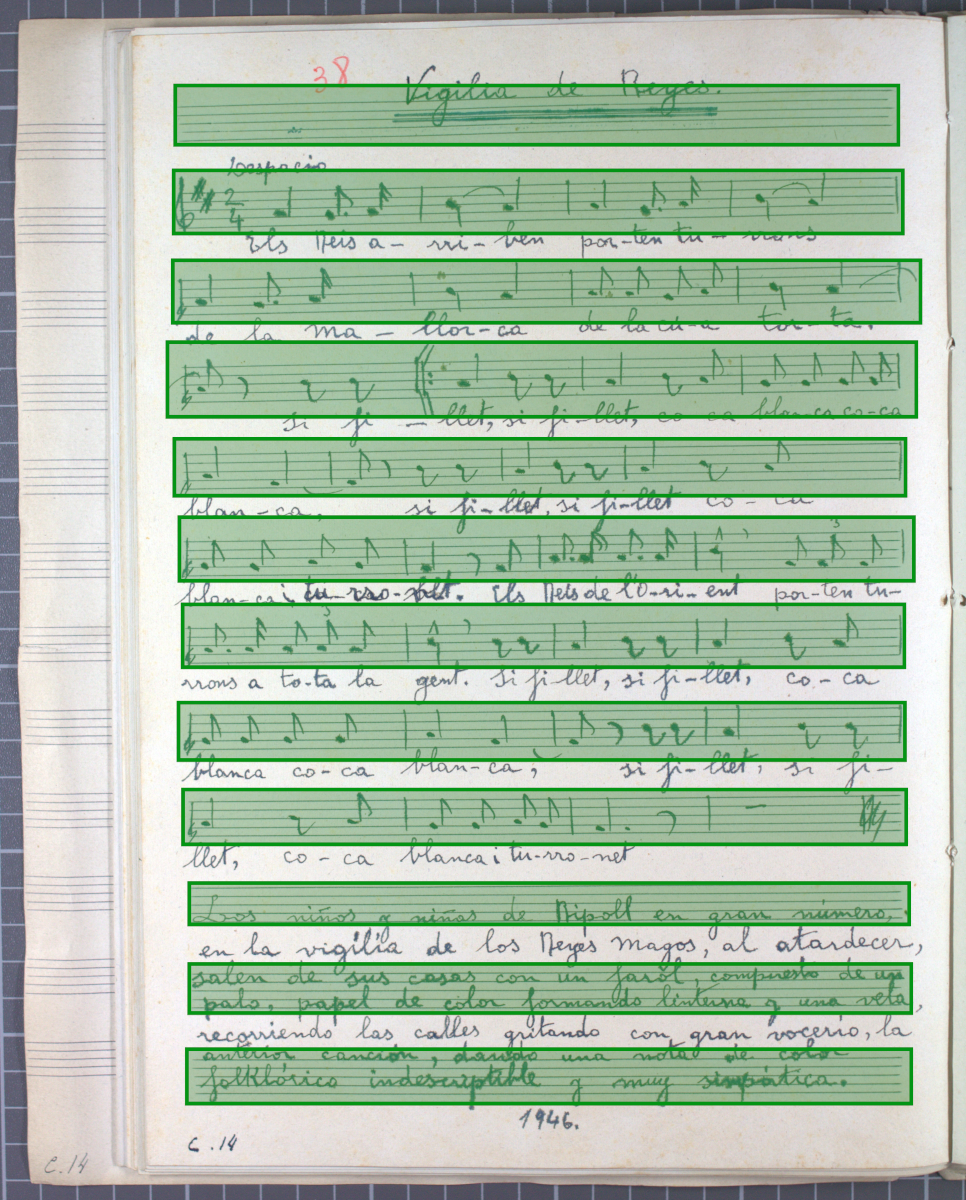 38 Vigilia de Reyes.
Despacio
2 4
Els Reis a- rri- ben por-ten tu- rrons
de la ma- llor-ca de la cu-a tor-ta.
si fi-llet, si fi-llet, co-ca blan-ca co-ca
blan-ca, si fi-llet, si fi-llet co-ca
blan-ca i tu-rro-net. Els Reis de l'O-ri-ent por-ten tu-
3
rrons a to-ta la gent. Si fi-llet, si fi-llet, co-ca
3
blanca co-ca blan-ca, si fi-llet, si fi-
llet, co-ca blanca i tu-rro-net
Los niños y niñas de Ripoll en gran número,
en la vigilia de los Reyes Magos, al atardecer,
salen de sus casas con un farol, compuesto de un
palo, papel de color formando linterna y una vela,
recorriendo las calles gritando con gran vocerío, la
anterior canción, dando una nota de color
folklórico indescriptible y muy simpática.
1946.
C.14
C.14